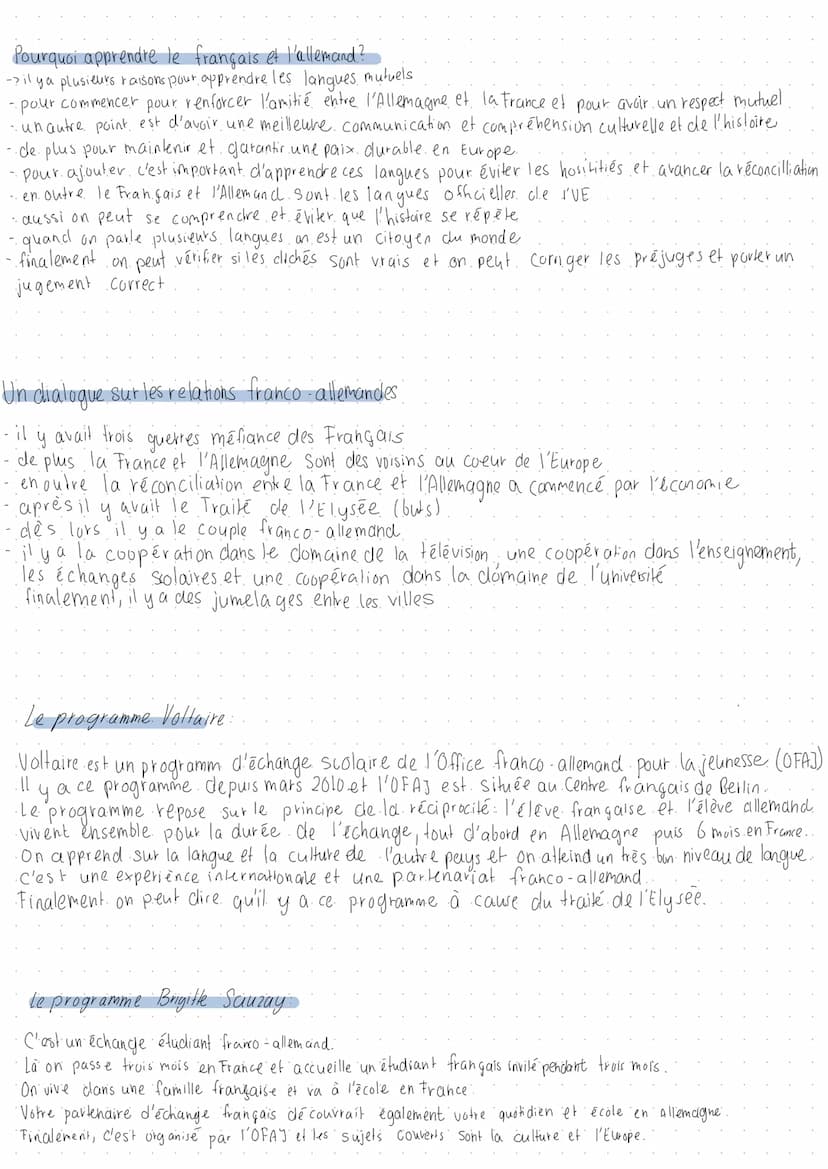 Pourquoi apprendre le français et l'allemand?
-> il y a plusieurs raisons pour apprendre les langues mutuels
- pour commencer pour renforcer l'amitié entre l'Allemagne et la France et pour avoir un respect mutuel
- un autre point est d'avoir une meilleure communication et compréhension culturelle et de l'histoire
- de plus pour maintenir et garantir une paix durable en Europe
- pour ajouter c'est important d'apprendre ces langues pour éviter les hosilitiés et avancer la réconcilliation
- en outre le Français et l'Allemand sont les langues officielles de l'UE
- aussi on peut se comprendre et éviter que l'histoire se répète
- quand on parle plusieurs langues on est un citoyen du monde
- finalement on peut vérifier si les clichés sont vrais et on peut corriger les préjuges et porter un
jugement correct
Un dialogue sur les relations franco-allemandes
- il y avait trois guerres méfiance des Français
- de plus la France et l'Allemagne sont des voisins au coeur de l'Europe
- en outre la réconciliation entre la France et l'Allemagne a commencé par l'économie
- après il y avait le Traité de l'Elysée (buts)
- dès lors il y a le couple franco-allemand
- il y a la coopération dans le domaine de la télévision, une coopération dans l'enseignement,
les échanges scolaires et une coopération dans la domaine de l'université
finalement, il y a des jumelages entre les villes
Le programme Voltaire:
Voltaire est un programm d'échange scolaire de l'Office franco-allemand pour la jeunesse (OFAJ)
Il y a ce programme depuis mars 2010 et l'OFAJ est située au Centre français de Berlin.
Le programme repose sur le principe de la réciprocité: l'élève française et l'élève allemand
vivent ensemble pour la durée de l'échange, tout d'abord en Allemagne puis 6 mois en France.
On apprend sur la langue et la culture de l'autre pays et on atteind un très bon niveau de langue.
C'est une expérience internationale et une partenariat franco-allemand.
Finalement on peut dire qu'il y a ce programme à cause du traité de l'Elysée.
Le programme Brigitte Sauzay:
C'est un échange étudiant franco-allemand.
Là on passe trois mois en France et accueille un étudiant français invité pendant trois mois.
On vive dans une famille française et va à l'école en France
Votre partenaire d'échange français découvrait également votre quotidien et école en allemagne.
Finalement, c'est organisé par l'OFAJ et les sujets couverts sont la culture et l'Europe.